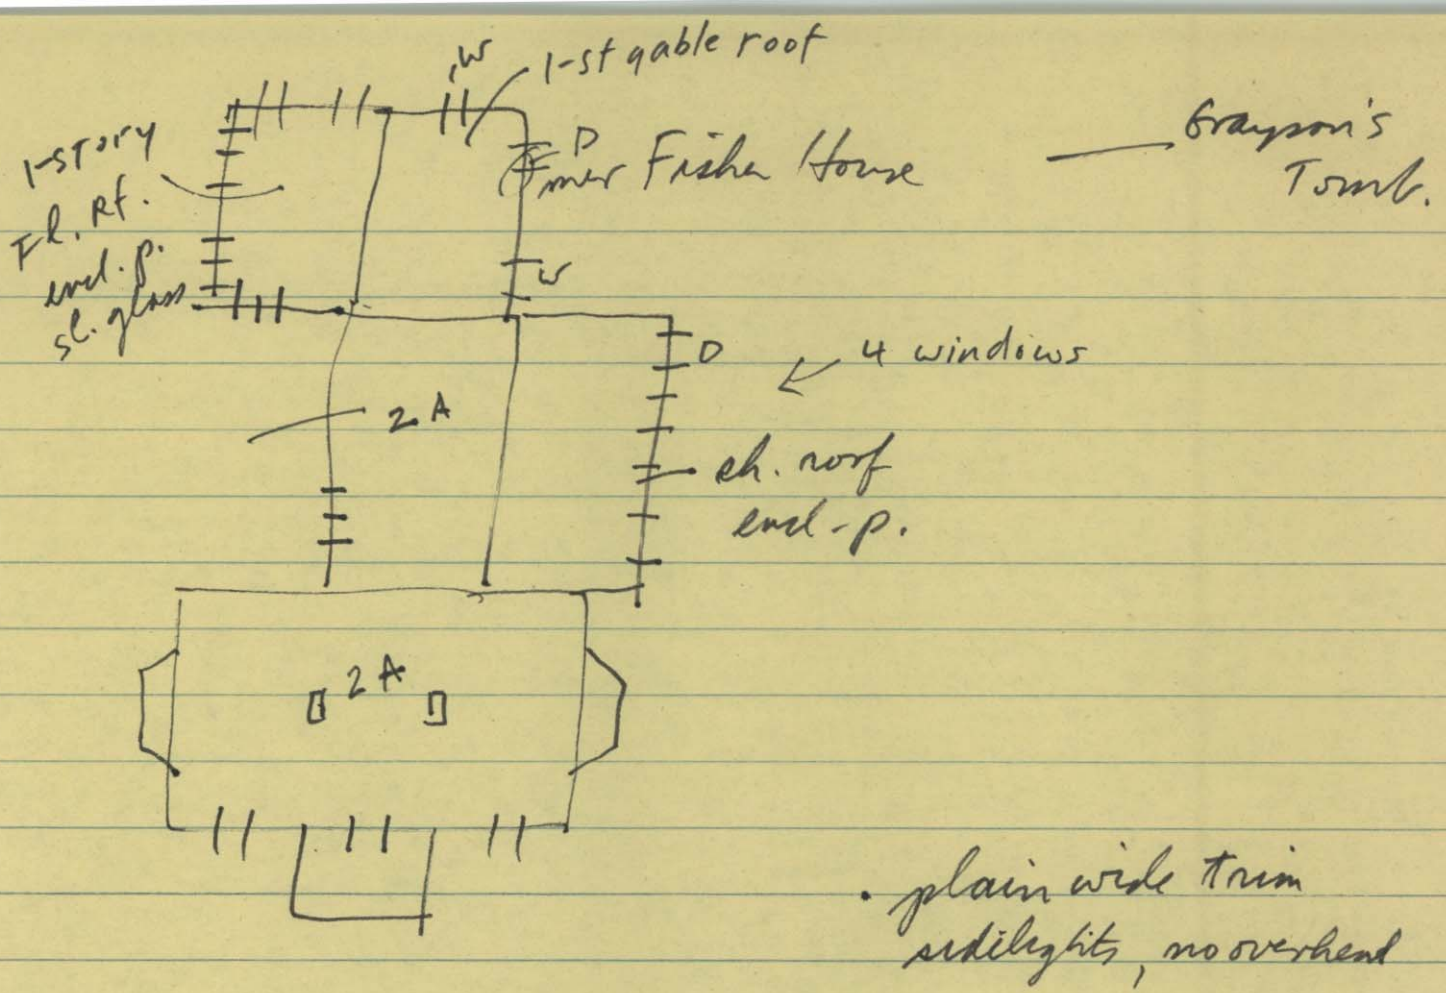 W
1-st gable roof
1-story
Fl. Rf.
encl. p.
sl. glass
D
Fisher House
Grayson's
Tomb.
W
D
4 windows
2 A
sh. roof
encl-p.
2 A
. plain wide trim
sidelights, no overhead